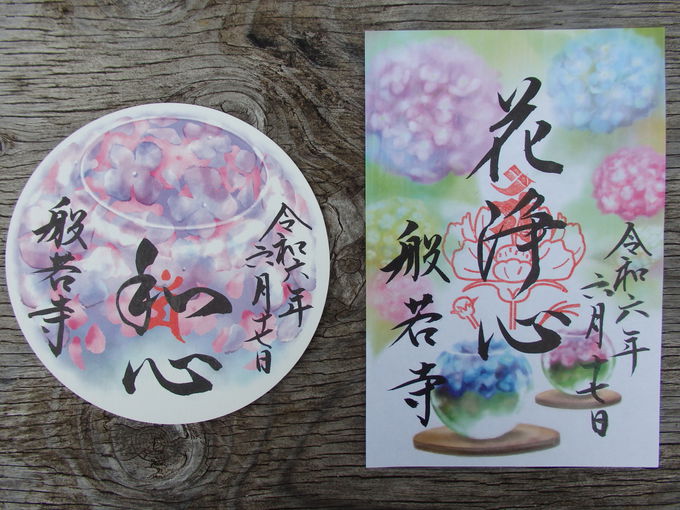 令和六年
六月十七日
和心
般若寺
令和六年
六月十七日
花浄心
般若寺